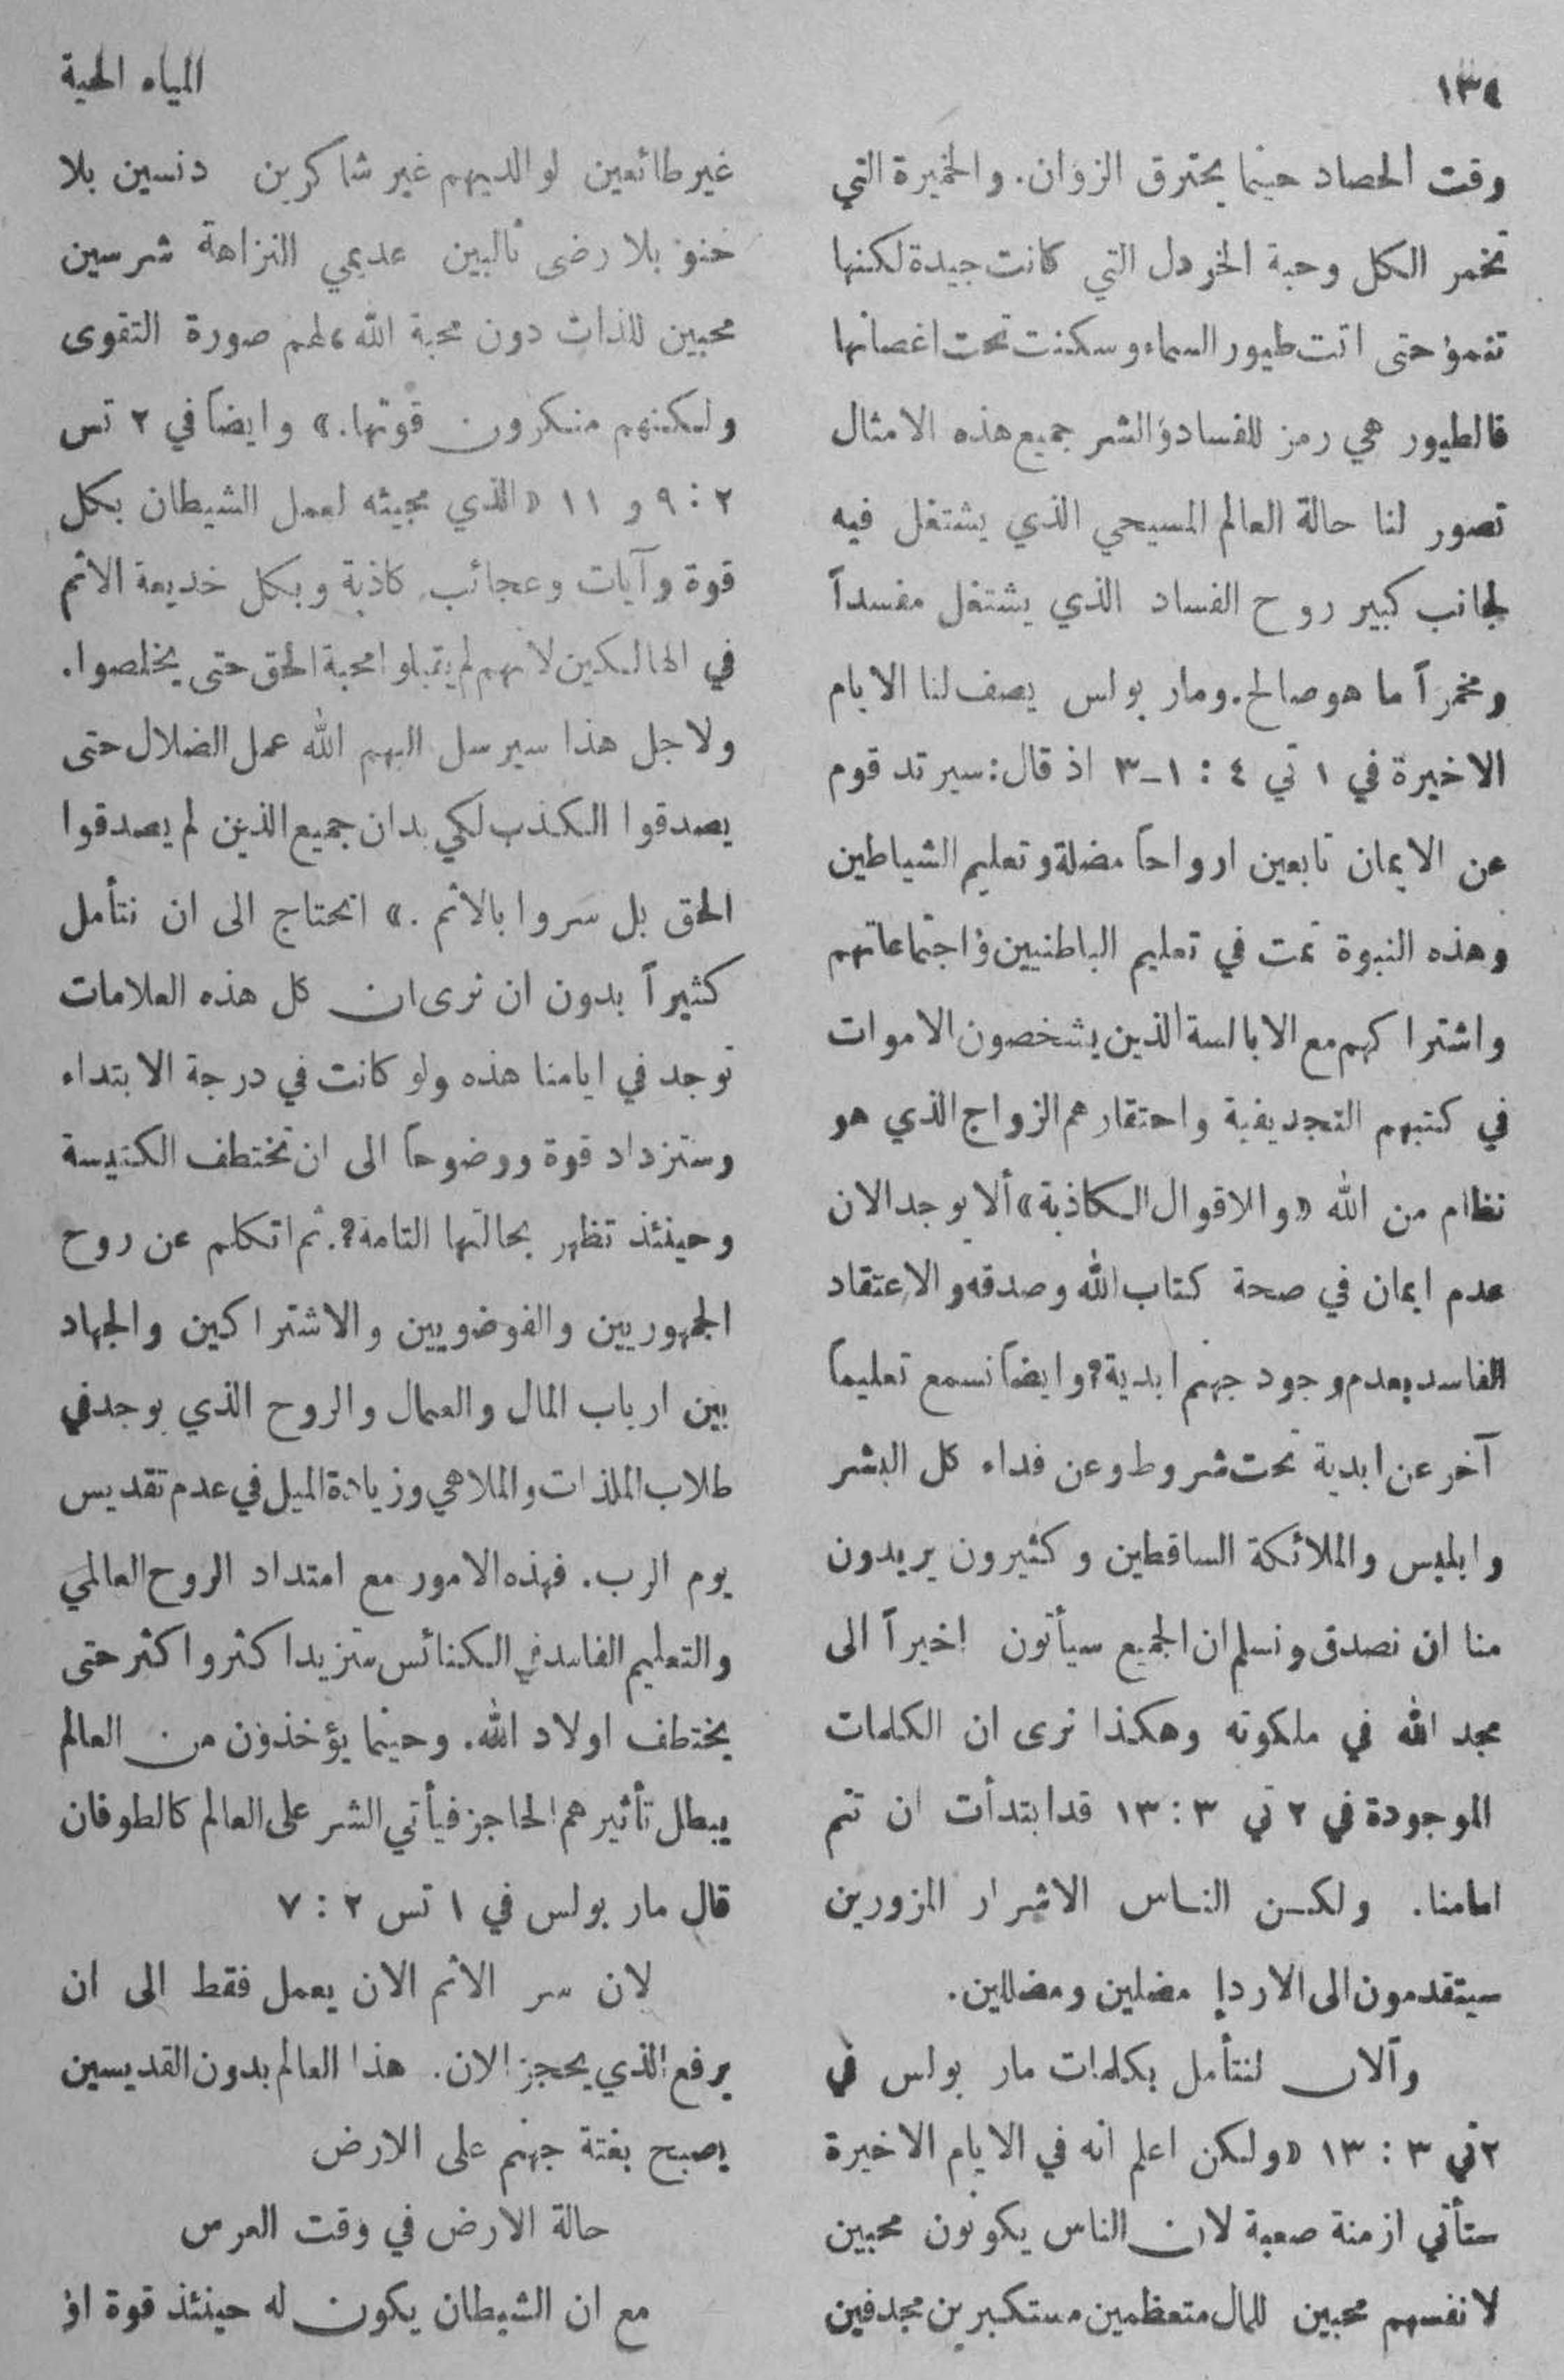 ١٣٤
المياه الحية
وقت الحصاد حينما يحترق الزوان. والخميرة التي
تخمر الكل وحبة الخردل التي كانت جيدة لكنها
تنمو حتى اتت طيور السماء وسكنت تحت اغصانها
فالطيور هي رمز للفساد والشر جميع هذه الامثال
تصور لنا حالة العالم المسيحي الذي يشتغل فيه
لجانب كبير روح الفساد الذي يشتغل مفسداً
ومخمراً ما هو صالح. ومار بولس يصف لنا الايام
الاخيرة في ١ تي ٤ : ١-٣ اذ قال: سيرتد قوم
عن الايمان تابعين ارواحاً مضلة وتعليم الشياطين
وهذه النبوة تمت في تعليم الباطنيين واجتماعاتهم
واشتراكهم مع الابالسة الذين يشخصون الاموات
في كتبهم التجديفية واحتقارهم الزواج الذي هو
نظام من الله «والاقوال الكاذبة» ألا يوجد الان
عدم ايمان في صحة كتاب الله وصدقه والاعتقاد
الفاسد بعدم وجود جهنم ابدية؟ وايضاً نسمع تعليماً
آخر عن ابدية تحت شروط وعن فداء كل البشر
وابليس والملائكة الساقطين وكثيرون يريدون
منا ان نصدق ونسلم ان الجميع سيأتون اخيراً الى
مجد الله في ملكوته وهكذا نرى ان الكلمات
الموجودة في ٢ تي ٣ : ١٣ قد ابتدأت ان تتم
امامنا. ولكن الناس الاشرار المزورين
سيتقدمون الى الاردإ مضلين ومضللين.
وآلان لنتأمل بكلمات مار بولس في
٢ تي ٣ : ١٣ «ولكن اعلم انه في الايام الاخيرة
ستأتي ازمنة صعبة لان الناس يكونون محبين
لانفسهم محبين للمال متعظمين مستكبرين مجدفين
غير طائعين لوالديهم غير شاكرين دنسين بلا
حنو بلا رضى ثالبين عديمي النزاهة شرسين
محبين للذات دون محبة الله، لهم صورة التقوى
ولكنهم منكرون قوتها.» وايضاً في ٢ تس
٢ : ٩ و ١١ «الذي مجيئه لعمل الشيطان بكل
قوة وآيات وعجائب كاذبة وبكل خديعة الاثم
في الهالكين لانهم لم يقبلوا محبة الحق حتى يخلصوا.
ولاجل هذا سيرسل اليهم الله عمل الضلال حتى
يصدقوا الكذب لكي يدان جميع الذين لم يصدقوا
الحق بل سروا بالاثم.» انحتاج الى ان نتأمل
كثيراً بدون ان نرى ان كل هذه العلامات
توجد في ايامنا هذه ولو كانت في درجة الابتداء
وستزداد قوة ووضوحاً الى ان تختطف الكنيسة
وحينئذ تظهر بحالتها التامة؟. ثم اتكلم عن روح
الجمهوريين والفوضويين والاشتراكين والجهاد
بين ارباب المال والعمال والروح الذي يوجد في
طلاب الملذات والملاهي وزيادة الميل في عدم تقديس
يوم الرب. فهذه الامور مع امتداد الروح العالمي
والتعليم الفاسد في الكنائس ستزيد اكثر واكثر حتى
يختطف اولاد الله. وحينما يؤخذون من العالم
يبطل تأثيرهم الحاجز فيأتي الشر على العالم كالطوفان
قال مار بولس في ١ تس ٢ : ٧
لان سر الاثم الان يعمل فقط الى ان
يرفع الذي يحجز الان. هذا العالم بدون القديسين
يصبح بغتة جهنم على الارض
حالة الارض في وقت العرس
مع ان الشيطان يكون له حينئذ قوة او